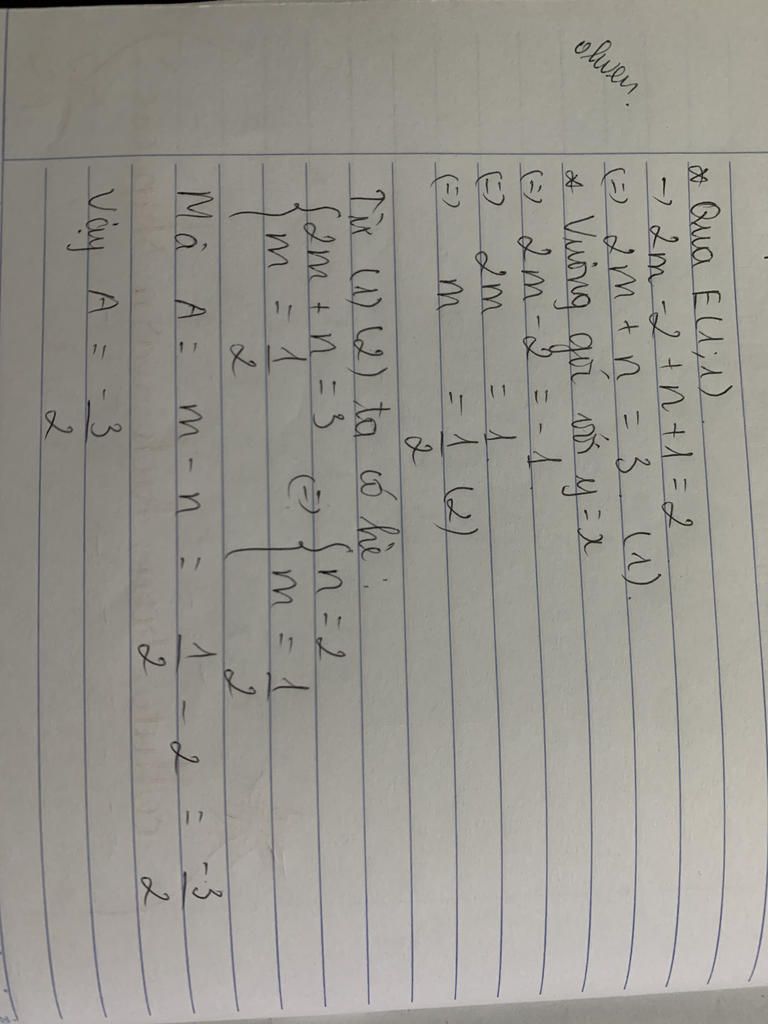 * Qua E(1;1)
→ 2m - 2 + n + 1 = 2
(=) 2m + n = 3 (1).
* Vuông góc với y = x
(=) 2m - 2 = -1
(=) 2m = 1
(=) m = 1/2 (2)
Từ (1) (2) ta có hệ:
{2m + n = 3 (=) {n = 2
{m = 1/2 {m = 1/2
Mà A = m - n = 1/2 - 2 = -3/2
Vậy A = -3/2